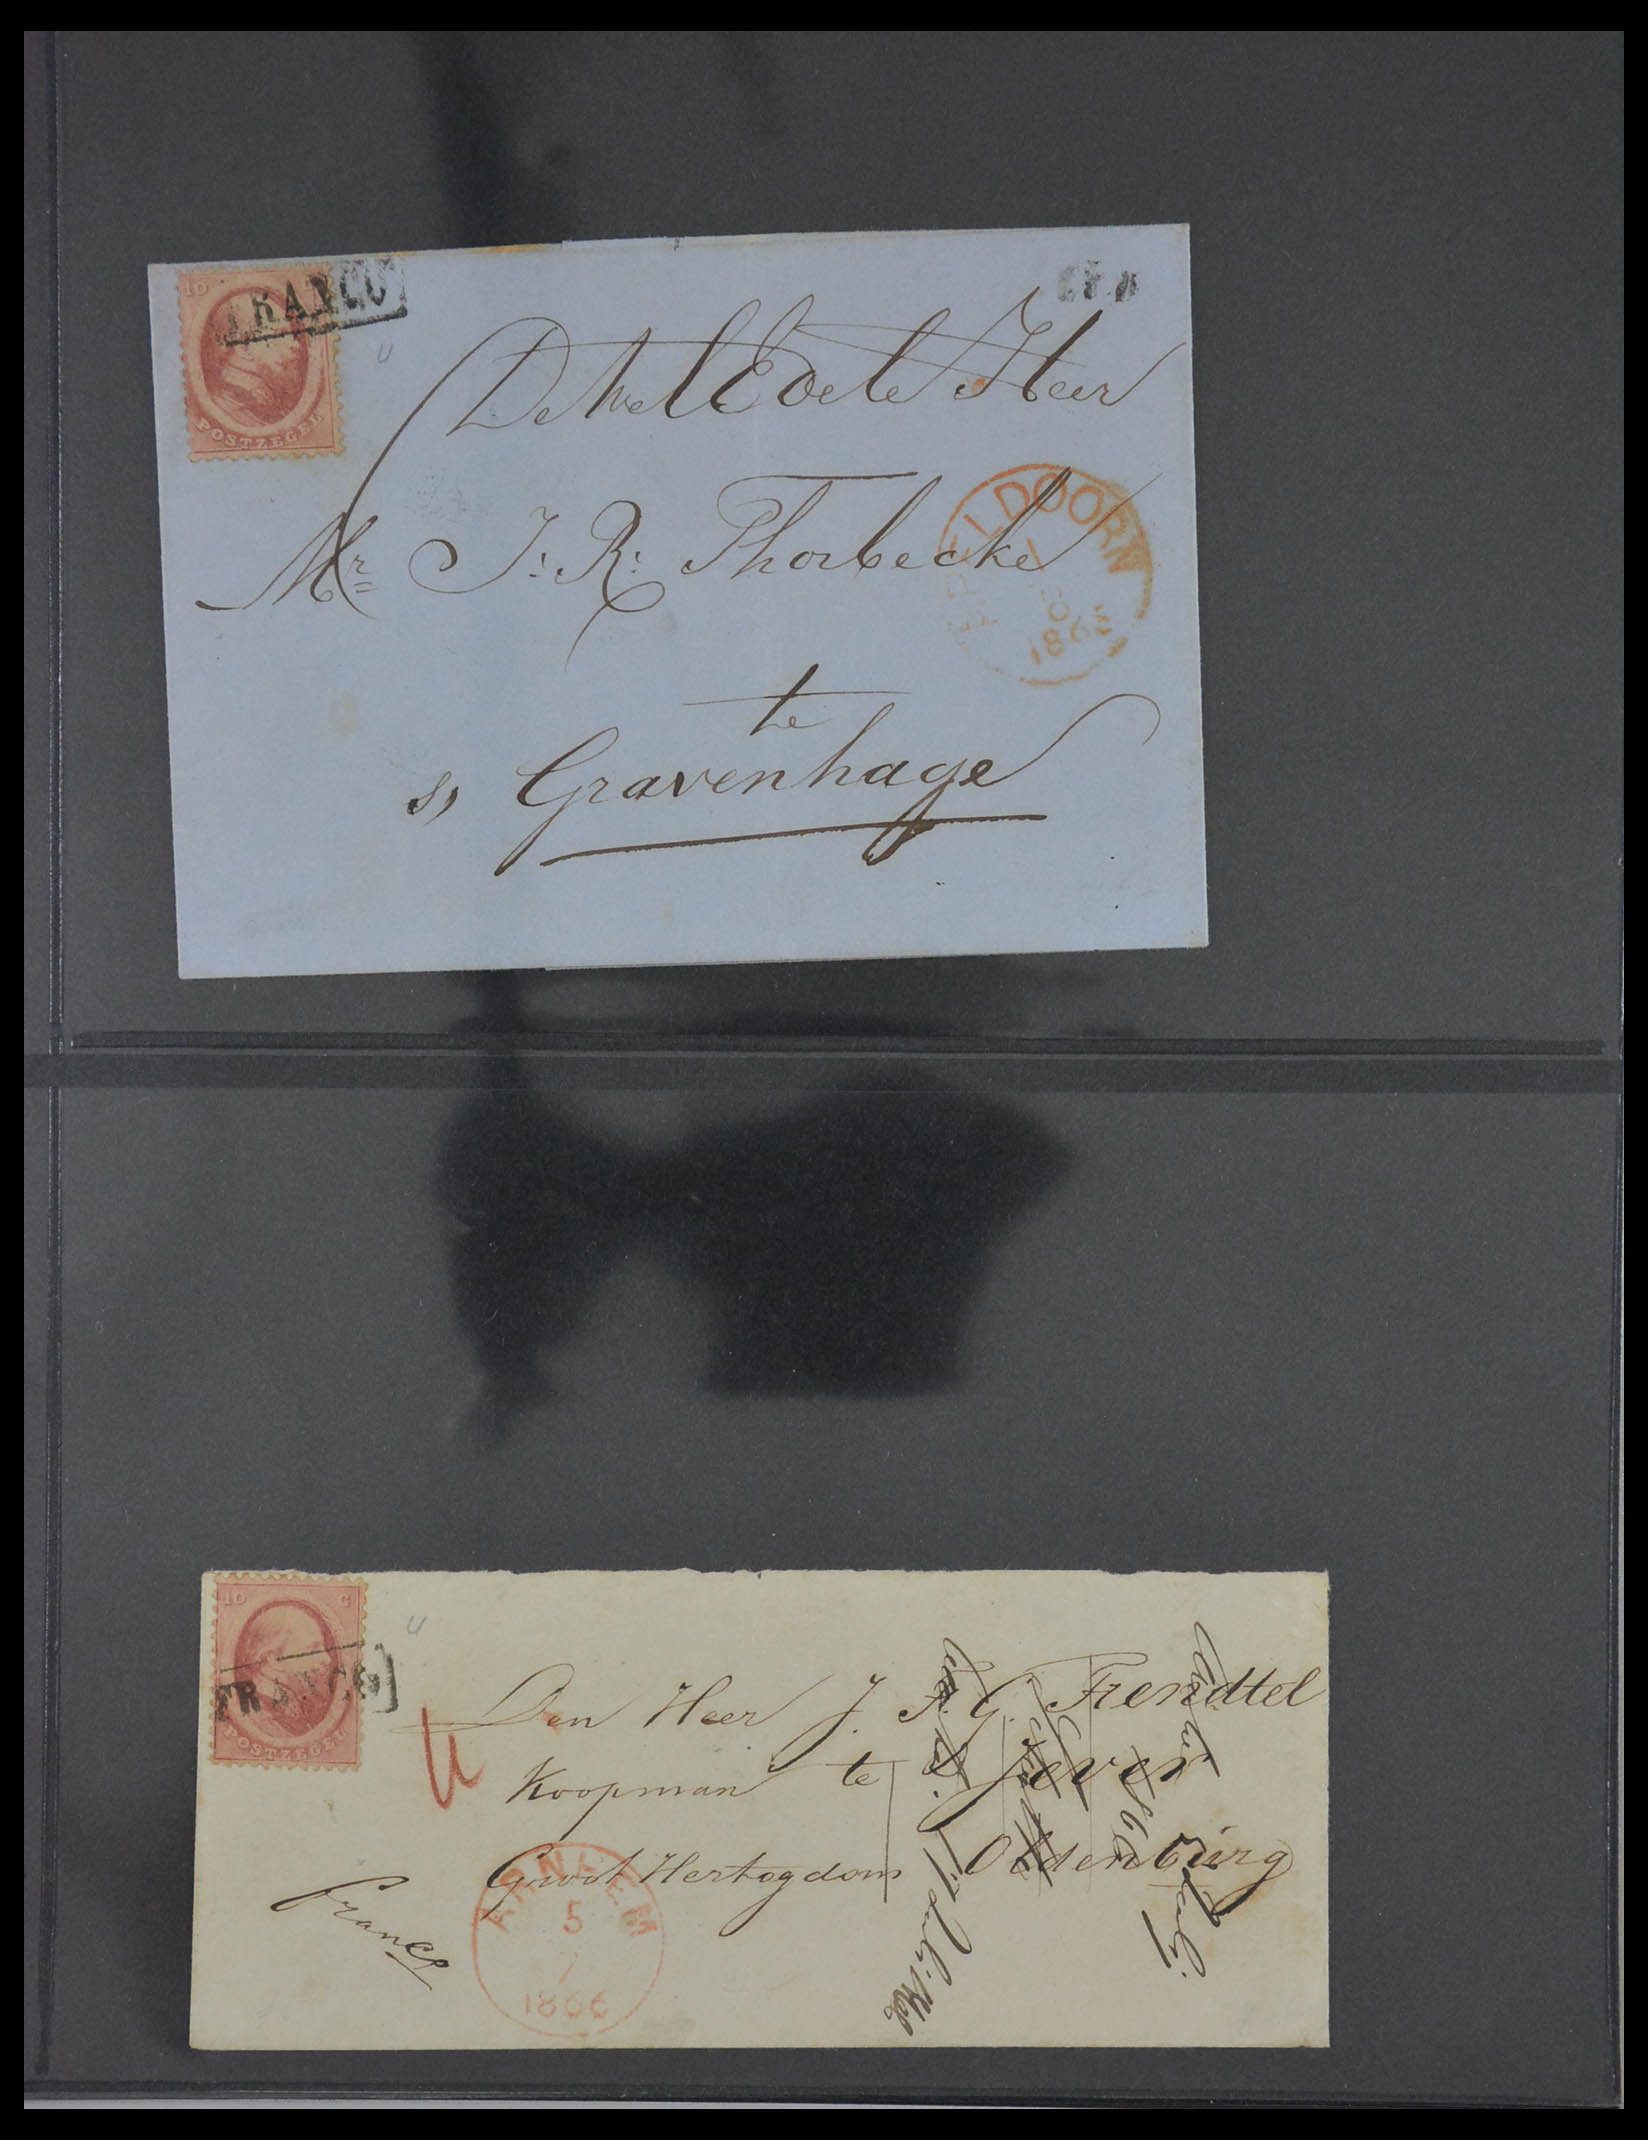 10
FRANCO
POSTZEGEL
De WelEdele Heer
Mr J: R: Thorbecke
APELDOORN
te
s, Gravenhage
10 C
FRANCO
POSTZEGEL
Den Heer J. F. G. Frendtel
Koopman te Jever
Groot Hertogdom Oldenburg
franco
ARNHEM
5
7
1866